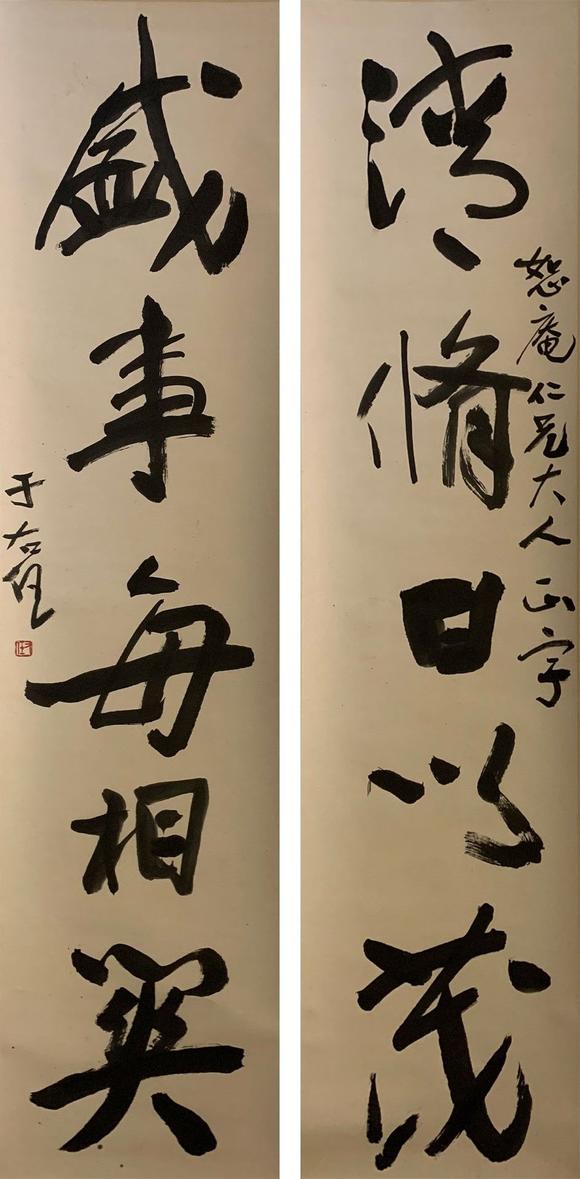 清脩日以茂
恕庵仁兄大人正字
盛事每相契
于右任